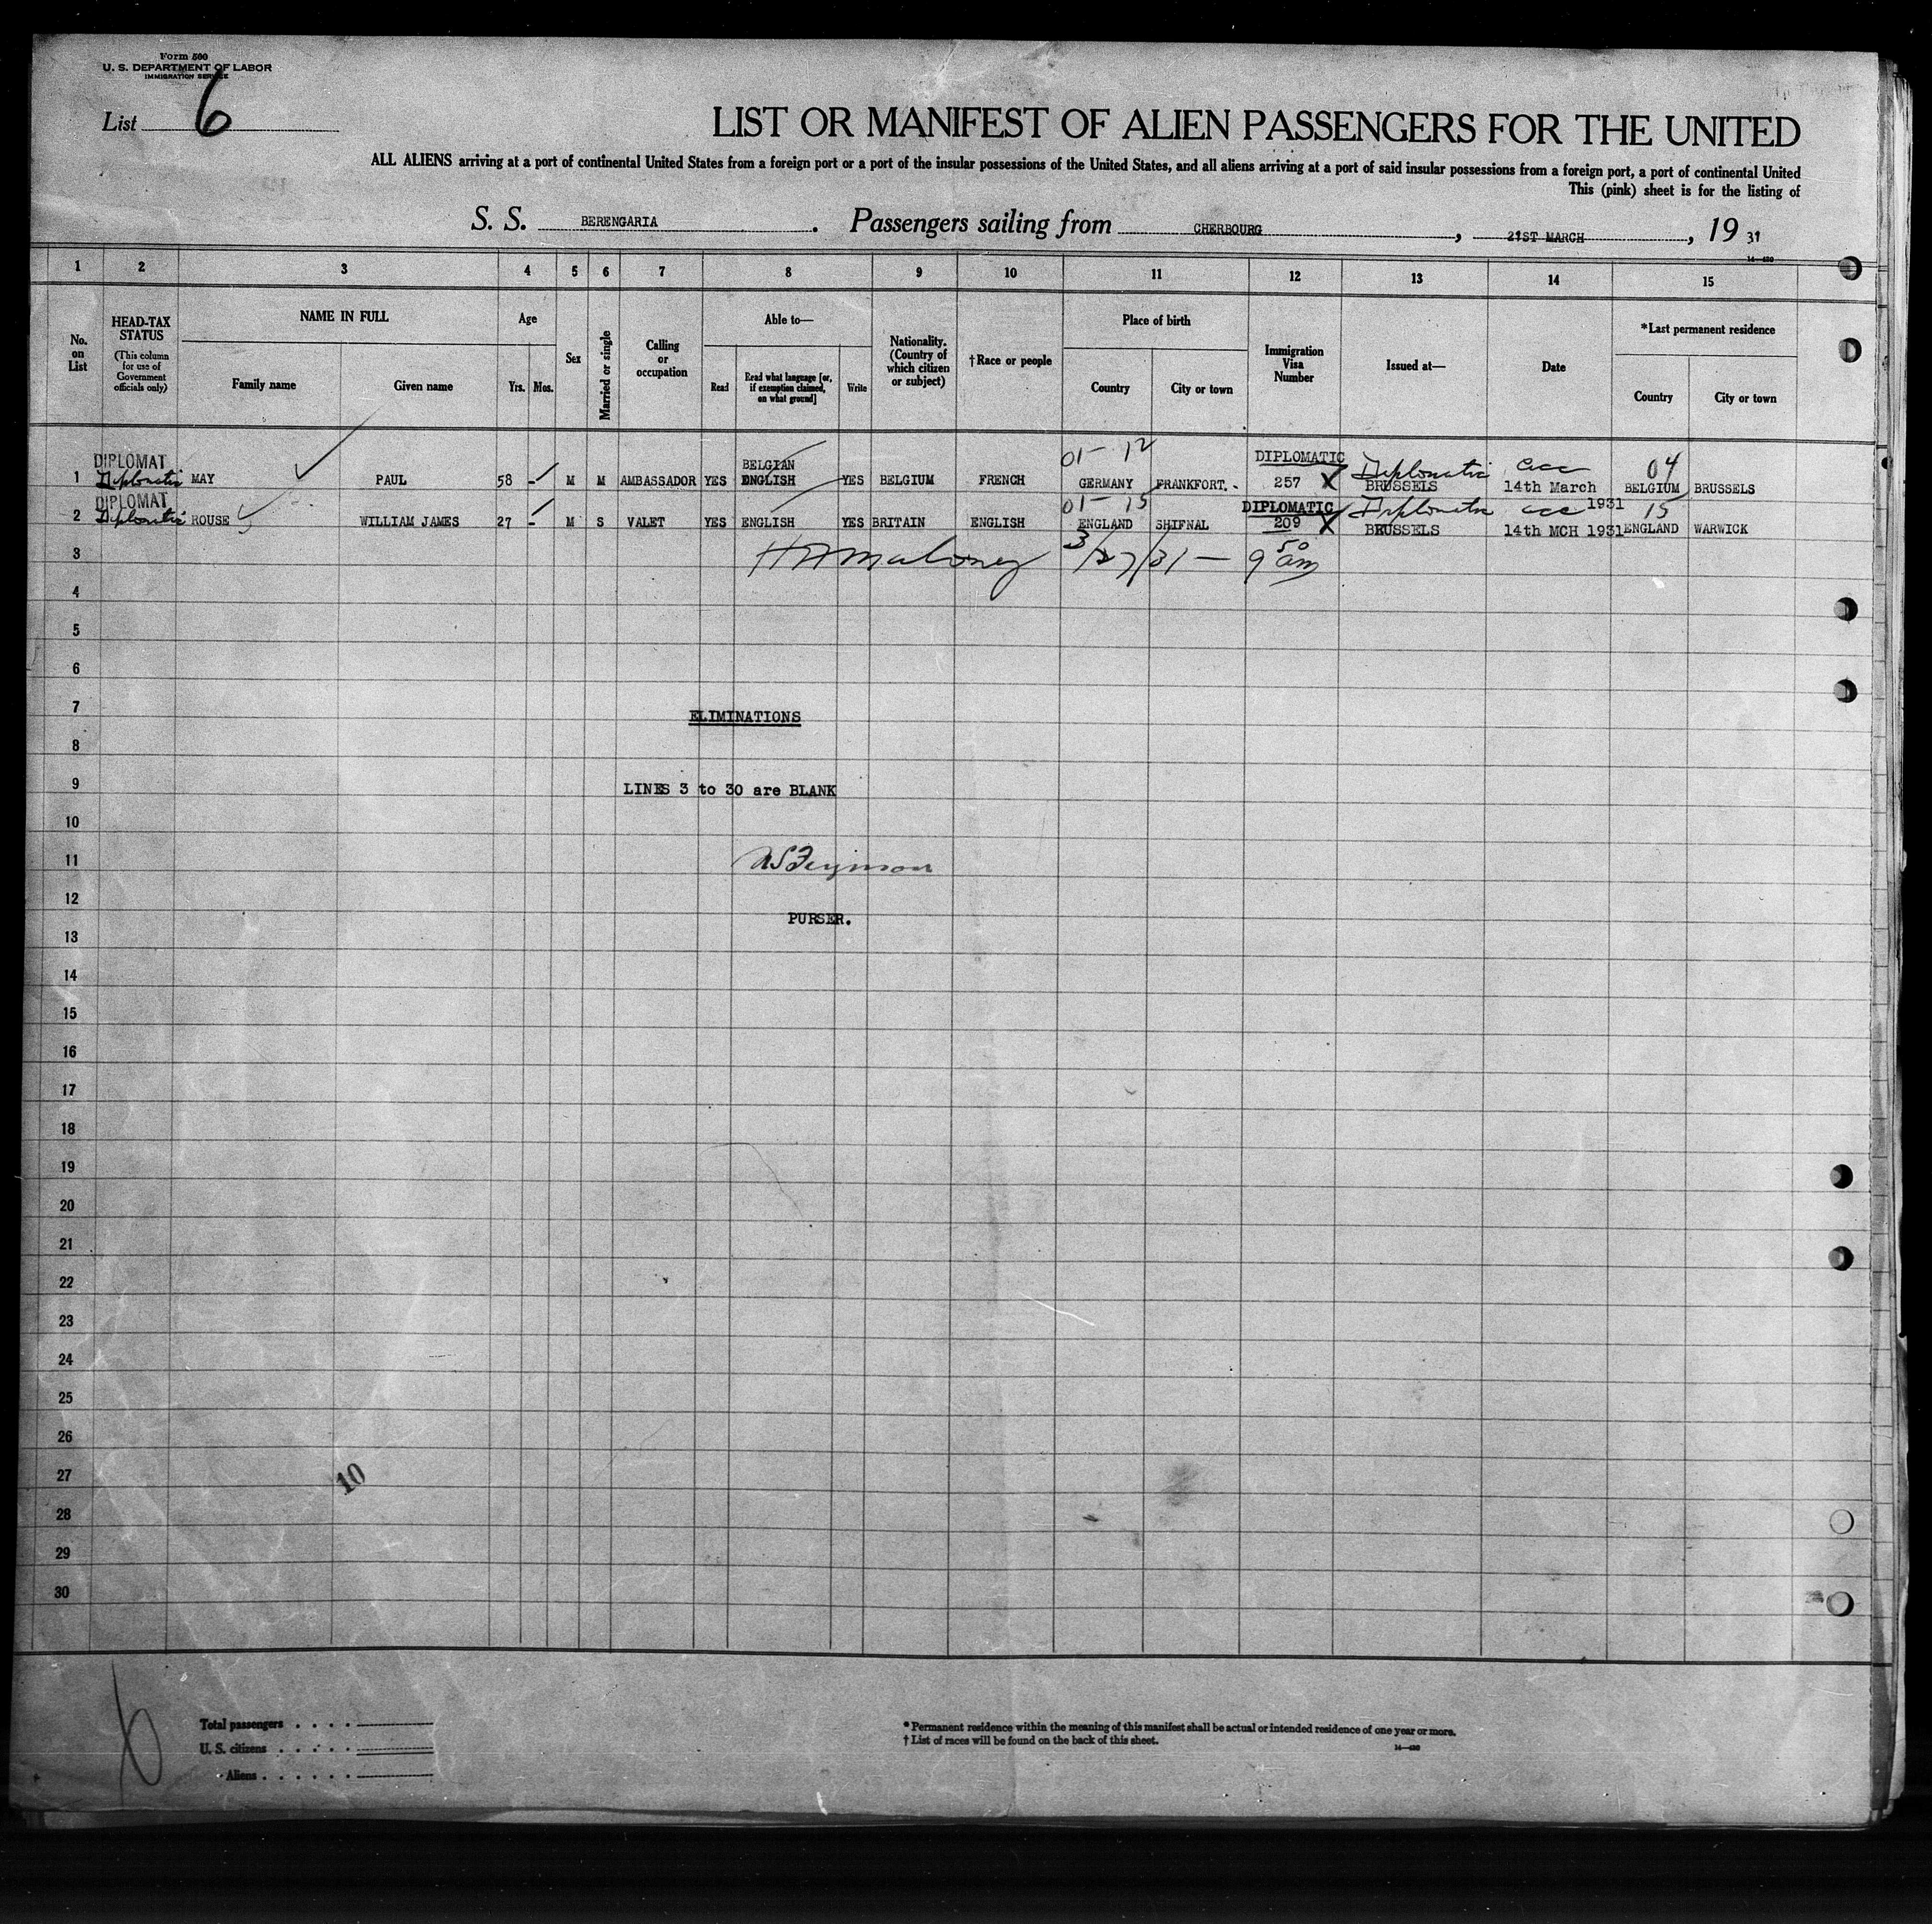 Form 500
U. S. DEPARTMENT OF LABOR
IMMIGRATION SERVICE
List 6
LIST OR MANIFEST OF ALIEN PASSENGERS FOR THE UNITED
ALL ALIENS arriving at a port of continental United States from a foreign port or a port of the insular possessions of the United States, and all aliens arriving at a port of said insular possessions from a foreign port, a port of continental United
This (pink) sheet is for the listing of
S. S. BERENGARIA. Passengers sailing from CHERBOURG, 21ST MARCH, 19 31
1 2 3 4 5 6 7 8 9 10 11 12 13 14 15
No. on List
HEAD-TAX STATUS (This column for use of Government officials only)
NAME IN FULL
Family name
Given name
Age
Yrs. Mos.
Sex
Married or single
Calling or occupation
Able to—
Read
Read what language [or, if exemption claimed, on what ground]
Write
Nationality. (Country of which citizen or subject)
†Race or people
Place of birth
Country
City or town
Immigration Visa Number
Issued at—
Date
*Last permanent residence
Country
City or town
01- 12
DIPLOMAT BELGIAN DIPLOMATIC Diplomatic 04
1 Diplomatic MAY PAUL 58 - M M AMBASSADOR YES ENGLISH YES BELGIUM FRENCH GERMANY FRANKFORT. - 257 X BRUSSELS 14th March 1931 BELGIUM BRUSSELS
01- 15
DIPLOMAT DIPLOMATIC Diplomatic 15
2 Diplomatic ROUSE WILLIAM JAMES 27 - M S VALET YES ENGLISH YES BRITAIN ENGLISH ENGLAND SHIFNAL 209 X BRUSSELS 14th MCH 1931 ENGLAND WARWICK
3 H A Maloney 3/27/31 — 9 50 am
4
5
6
7 ELIMINATIONS
8
9 LINES 3 to 30 are BLANK
10
11
12 PURSER.
13
14
15
16
17
18
19
20
21
22
23
24
25
26
27 10
28
29
30
6
Total passengers . . . .
U. S. citizens . . . . .
Aliens . . . . . .
* Permanent residence within the meaning of this manifest shall be actual or intended residence of one year or more.
† List of races will be found on the back of this sheet.